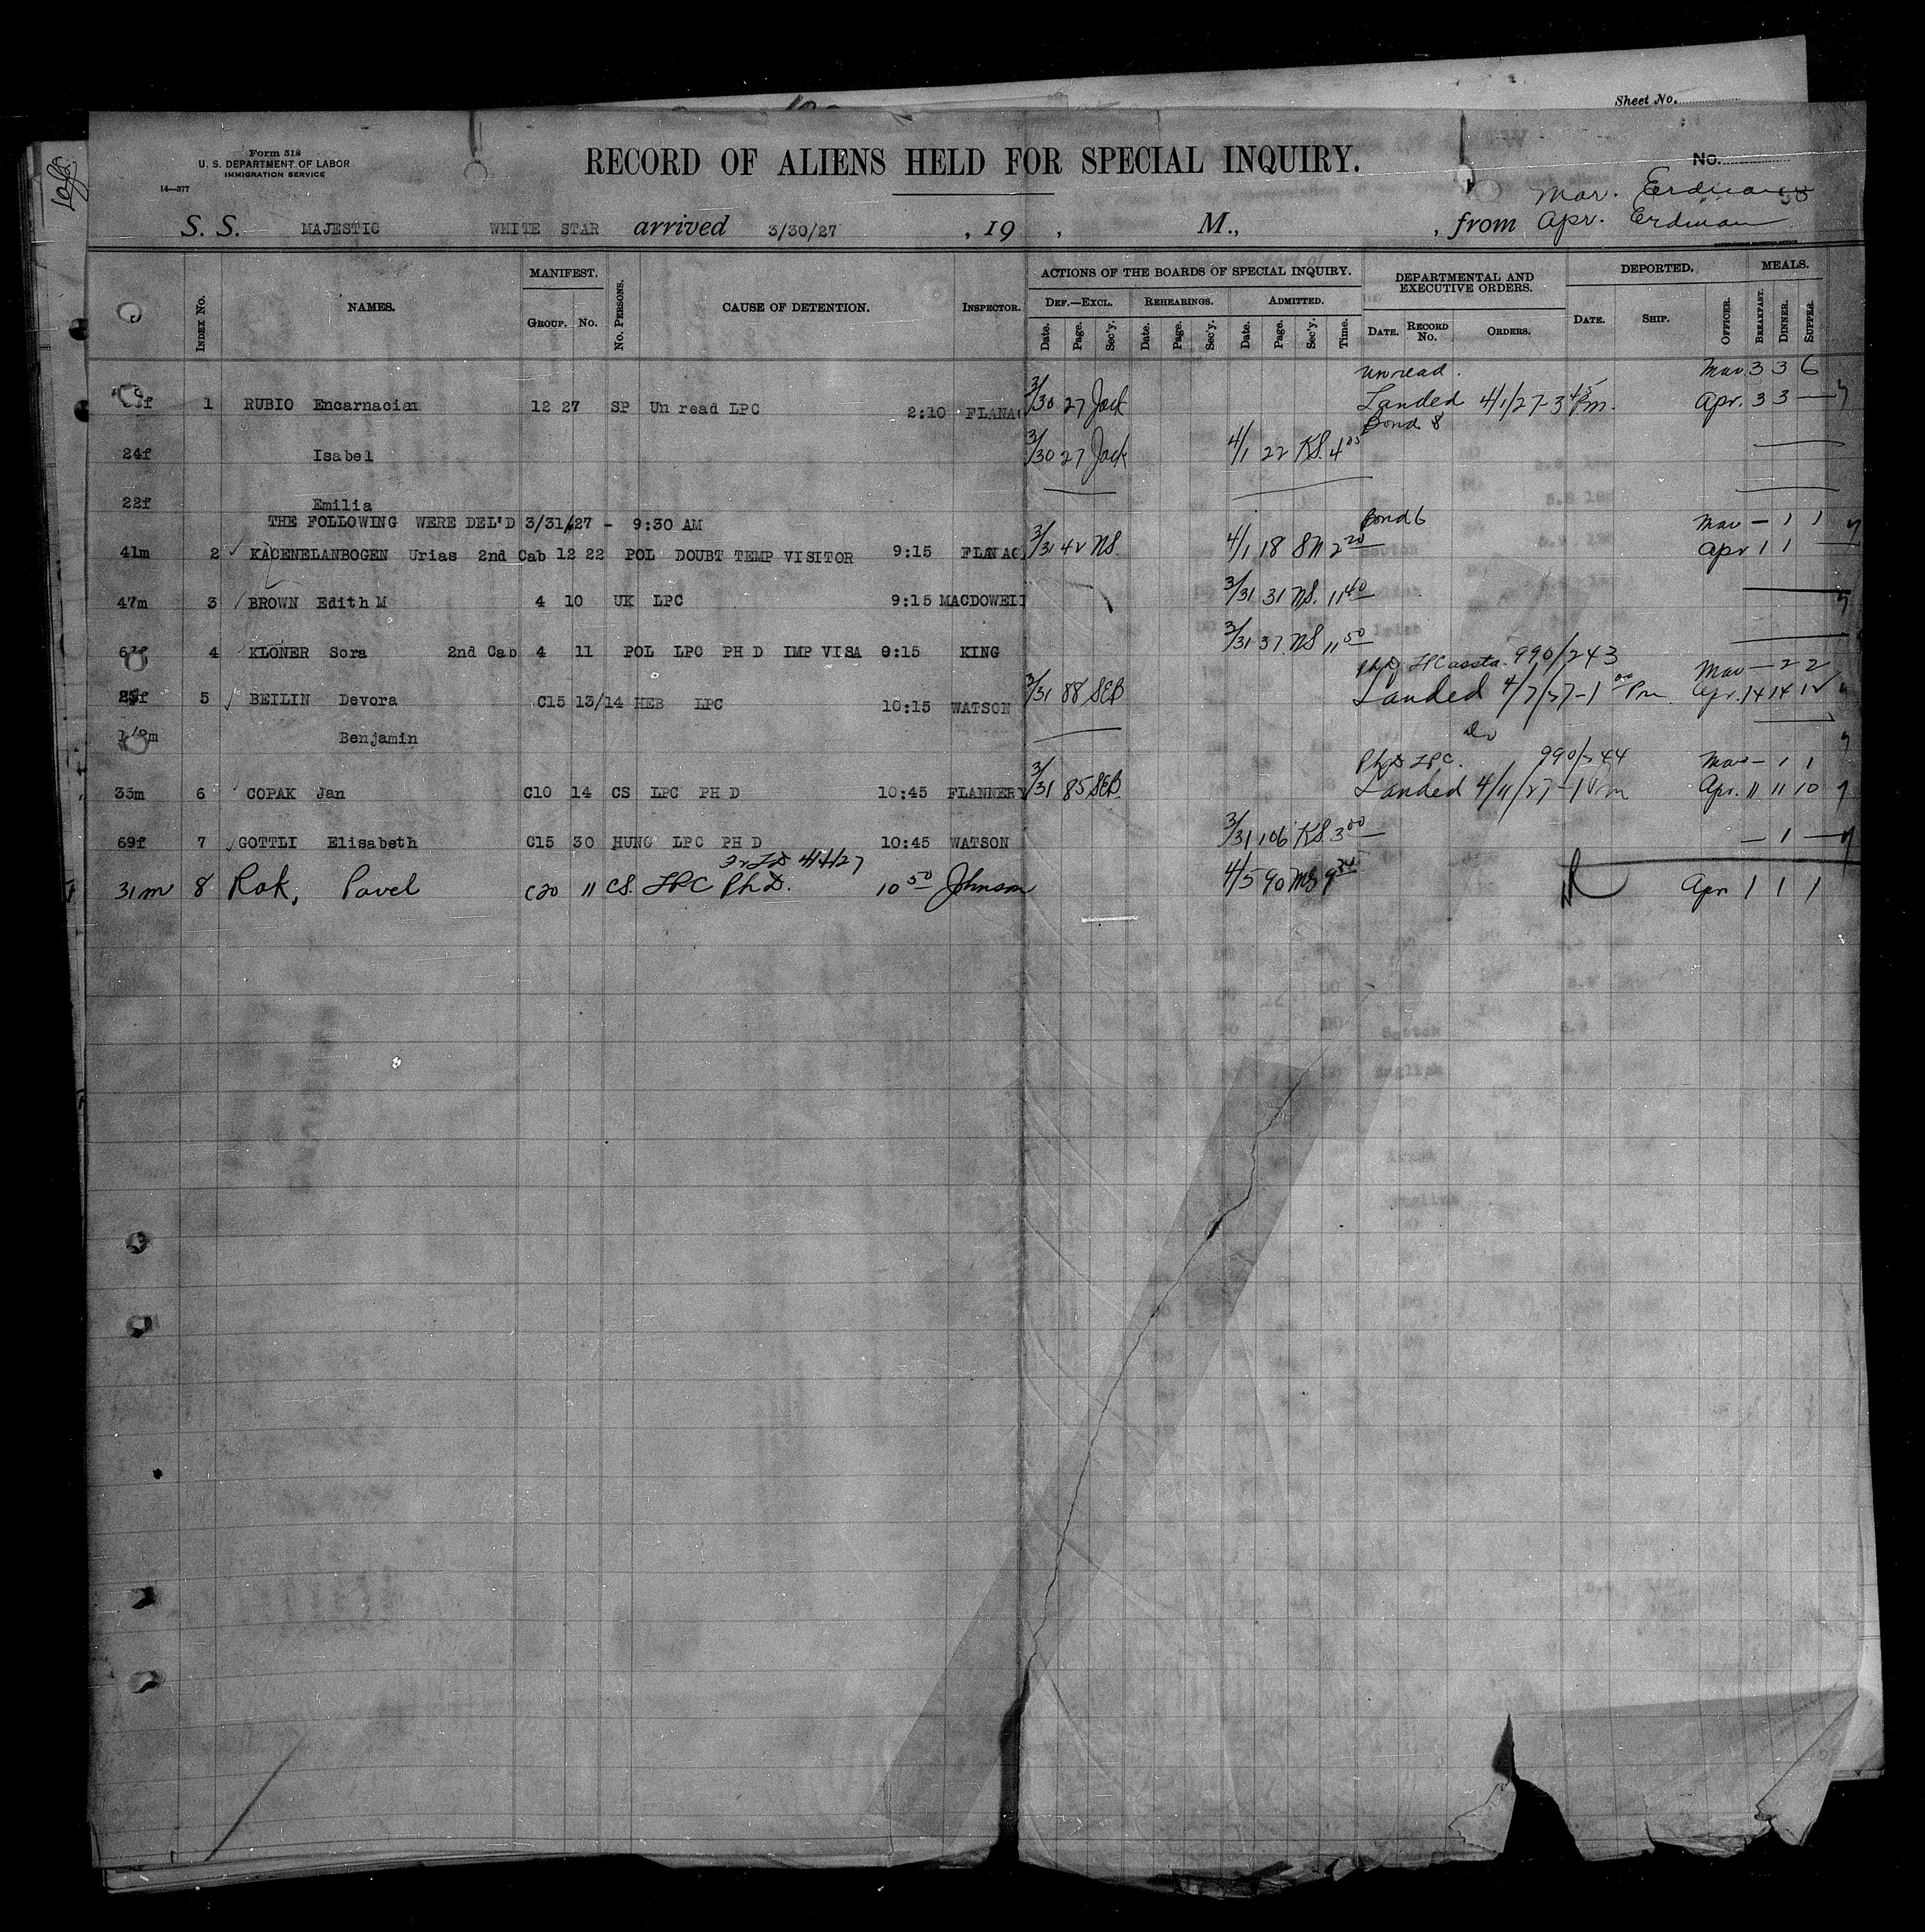 Sheet No.
Form 518
U. S. DEPARTMENT OF LABOR
IMMIGRATION SERVICE
14—377
RECORD OF ALIENS HELD FOR SPECIAL INQUIRY.
No.
Mar. Erdman
S. S. MAJESTIC WHITE STAR arrived 3/30/27, 19 , M., , from Apr. Erdman
INDEX No. NAMES. MANIFEST. GROUP. No. No. PERSONS. CAUSE OF DETENTION. INSPECTOR. ACTIONS OF THE BOARDS OF SPECIAL INQUIRY. DEF.—EXCL. Date. Page. Sec'y. REHEARINGS. Date. Page. Sec'y. ADMITTED. Date. Page. Sec'y. Time. DEPARTMENTAL AND EXECUTIVE ORDERS. DATE. RECORD No. ORDERS. DEPORTED. DATE. SHIP. OFFICER. MEALS. BREAKFAST. DINNER. SUPPER.
unread. Mar. 3 3 6
1 RUBIO Encarnacian 12 27 SP Un read LPC 2:10 FLANAG 3/30 27 Jack Landed 4/1/27-3 45 Pm. Apr. 3 3 —
Bond 8
24f Isabel 3/30 27 Jack 4/1 22 KS. 4 05
22f Emilia
THE FOLLOWING WERE DEL'D 3/31/27 - 9:30 AM Bond 6 Mar — 1 1
41m 2 KACENELANBOGEN Urias 2nd Cab 12 22 POL DOUBT TEMP VISITOR 9:15 FLANAG 3/31 42 NS. 4/1 18 SN 2 20 Apr 1 1 —
47m 3 BROWN Edith M 4 10 UK LPC 9:15 MACDOWELL 3/31 31 NS. 11 40
4 KLONER Sora 2nd Cab 4 11 POL LPC PH D IMP VISA 9:15 KING 3/31 37 NS 11 50
990/243 Mar — 2 2
5 BEILIN Devora C15 13/14 HEB LPC 10:15 WATSON 3/31 88 SEB Landed 4/7/27-1 00 Pm Apr. 14 14 12
Benjamin Do
PhD LPC. 990/244 Mar — 1 1
35m 6 COPAK Jan C10 14 CS LPC PH D 10:45 FLANNERY 3/31 85 SEB Landed 4/11/27-1 Pm Apr. 11 11 10
69f 7 GOTTLI Elisabeth C15 30 HUNG LPC PH D 10:45 WATSON 3/31 106 KS. 3 00 — 1 —
4/4/27
31m 8 Rak, Pavel C20 11 CS. LPC PhD. 10 50 Johnson 4/5 90 Apr 1 1 1